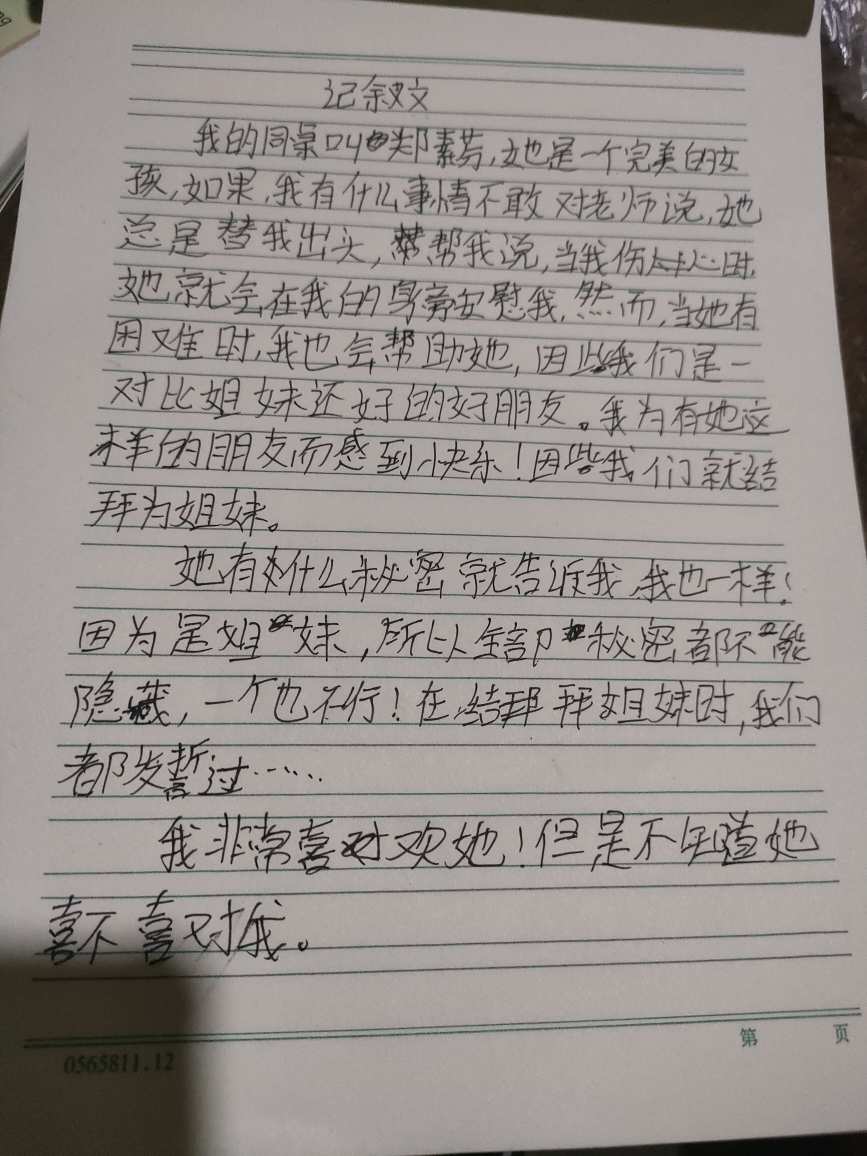 记叙文
我的同桌叫郑素芳，她是一个完美的女
孩，如果，我有什么事情不敢对老师说，她
总是替我出头，帮我说，当我伤心时，
她就会在我的身旁安慰我，然而，当她有
困难时，我也会帮助她，因此我们是一
对比姐妹还好的好朋友。我为有她这
样的朋友而感到快乐！因些我们就结
拜为姐妹。
她有什么秘密就告诉我，我也一样！
因为是姐妹，所以全部秘密都不能
隐藏，一个也不行！在结拜姐妹时，我们
都发誓过……
我非常喜欢她！但是不知道她
喜不喜对我。
第 页
0565811.12